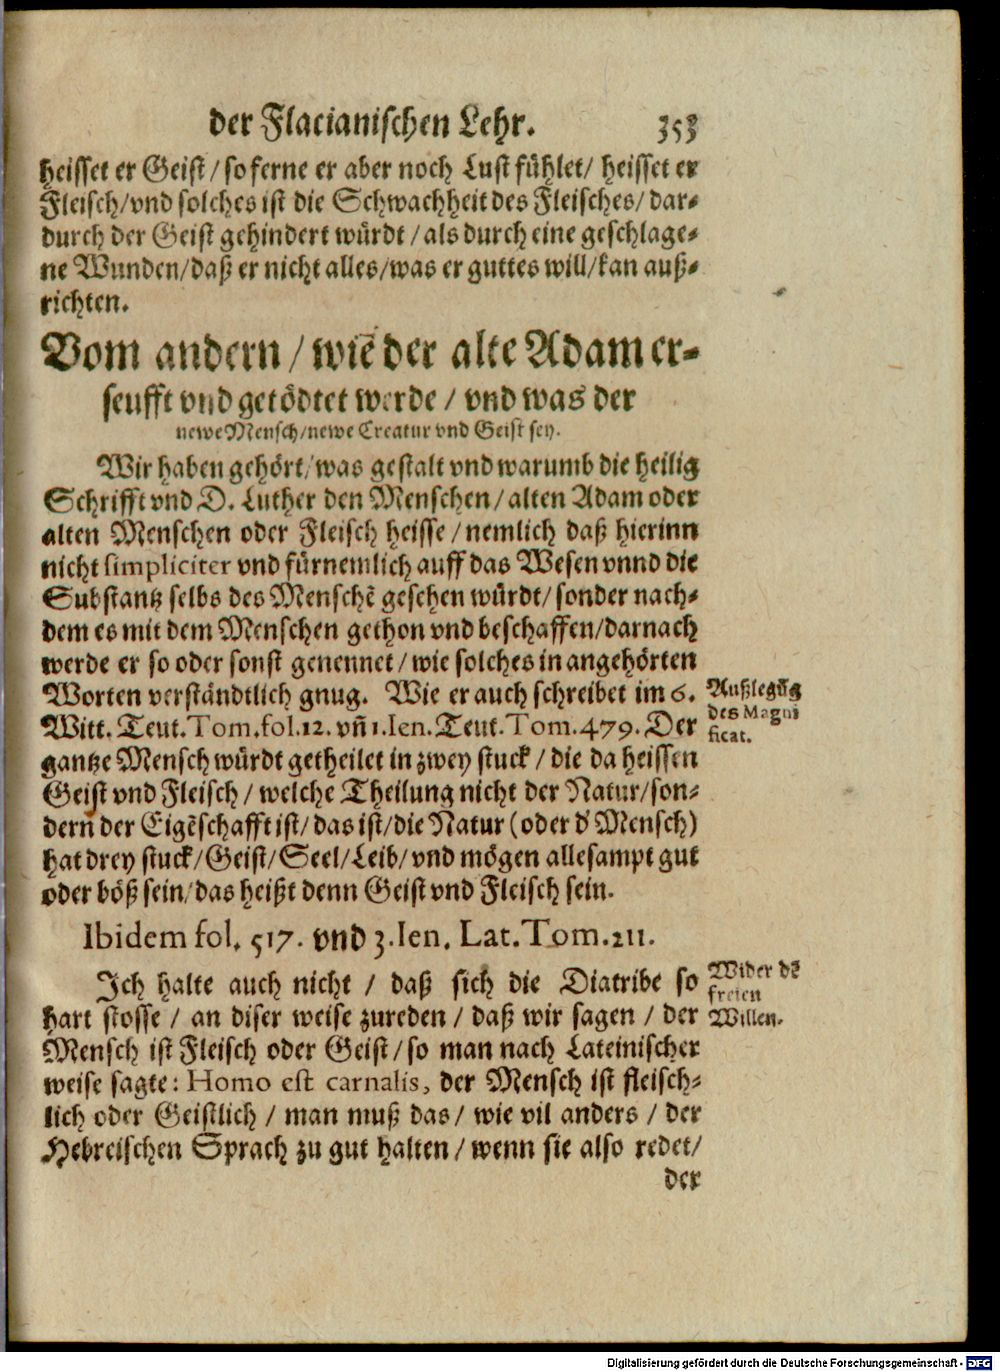 der Flacianischen Lehr. 353
heisset er Geist / so ferne er aber noch Lust fühlet / heisset er
Fleisch / vnd solches ist die Schwachheit des Fleisches / dar-
durch der Geist gehindert würdt / als durch eine geschlage-
ne Wunden / daß er nicht alles / was er guttes will / kan auß-
richten.
Vom andern / wie der alte Adam er-
seufft vnd getödtet werde / vnd was der
newe Mensch / newe Creatur vnd Geist sey.
Wir haben gehört / was gestalt vnd warumb die heilig
Schrifft vnd D. Luther den Menschen / alten Adam oder
alten Menschen oder Fleisch heisse / nemlich daß hierinn
nicht simpliciter vnd fürnemlich auff das Wesen vnnd die
Substantz selbs des Menschē gesehen würdt / sonder nach-
dem es mit dem Menschen gethon vnd beschaffen / darnach
werde er so oder sonst genennet / wie solches in angehörten
Worten verständtlich gnug. Wie er auch schreibet im 6.
Witt. Teut. Tom. fol. 12. vñ 1. Ien. Teut. Tom. 479. Der
gantze Mensch würdt getheilet in zwey stuck / die da heissen
Geist vnd Fleisch / welche Theilung nicht der Natur / son-
dern der Eigēschafft ist / das ist / die Natur (oder d' Mensch)
hat drey stuck / Geist / Seel / Leib / vnd mögen allesampt gut
oder böß sein / das heißt denn Geist vnd Fleisch sein.
Außlegūg
des Magni
ficat.
Ibidem fol. 517. vnd 3. Ien. Lat. Tom. 211.
Ich halte auch nicht / daß sich die Diatribe so
hart stosse / an diser weise zureden / daß wir sagen / der
Mensch ist Fleisch oder Geist / so man nach Lateinischer
weise sagte: Homo est carnalis, der Mensch ist fleisch-
lich oder Geistlich / man muß das / wie vil anders / der
Hebreischen Sprach zu gut halten / wenn sie also redet /
Wider dē
freien
Willen.
der
Digitalisierung gefördert durch die Deutsche Forschungsgemeinschaft - DFG